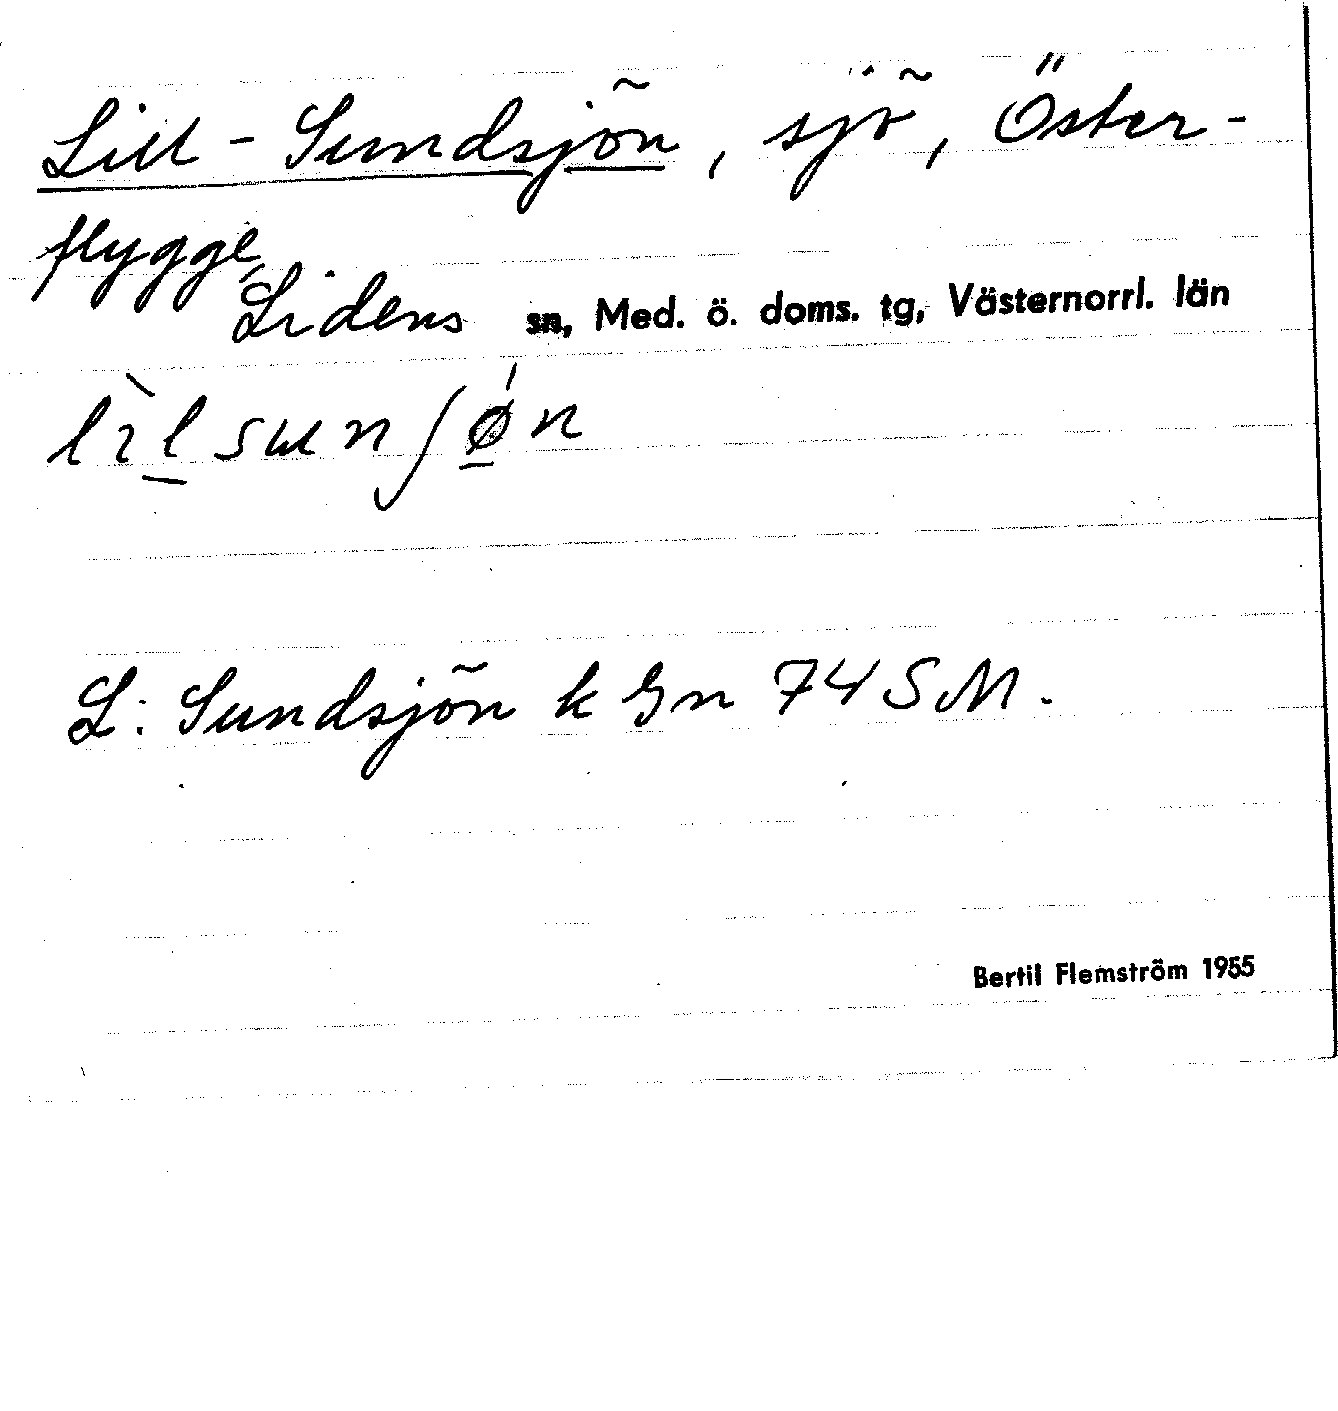 Lill-Sundsjön, sjö, Öster-
flygge,
Lidens sn, Med. ö. doms. tg, Västernorrl. län
lìlsunʃǿn
L: Sundsjön k Gn 74 SM.
Bertil Flemström 1955